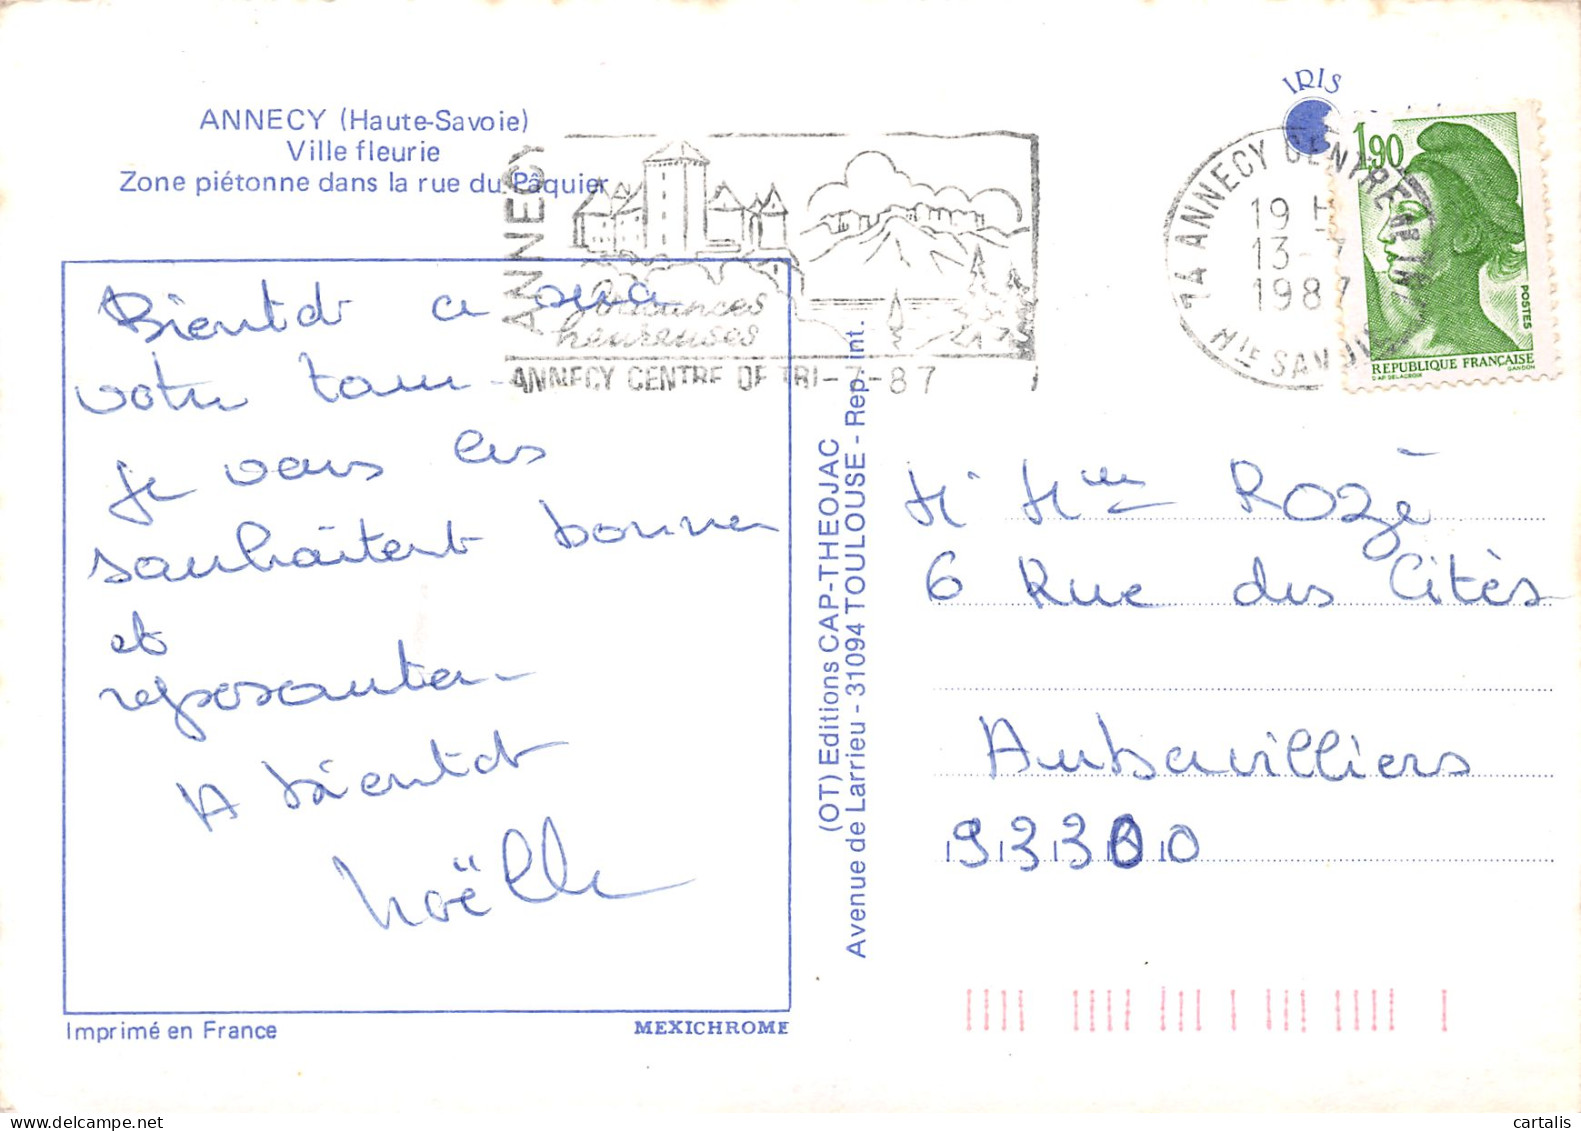 ANNECY (Haute-Savoie)
Ville fleurie
Zone piétonne dans la rue du Pâquier
ANNECY
ANNECY
Vacances
heureuses
ANNECY CENTRE DE TRI -7-87
IRIS
7A ANNECY CENTRE
19 H
13 -7
1987
Hte SAVOIE
1,90
POSTES
REPUBLIQUE FRANÇAISE
D'AP. DELACROIX GANDON
Bientôt ce sera
votre tour
je vous les
souhaitent bonnes
et
reposantes
A bientôt
Noëlle
Mr Mme Rozé
6 Rue des Cités
Aubervilliers
93300
(OT) Editions CAP-THEOJAC
Avenue de Larrieu - 31094 TOULOUSE - Rep. int.
Imprimé en France
MEXICHROME
cartalis